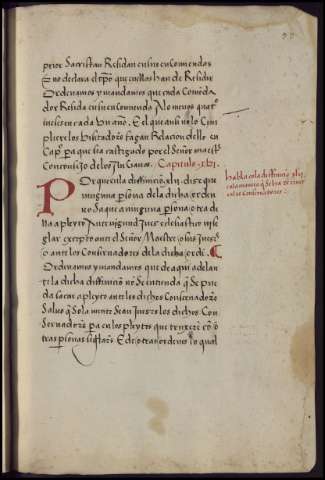 prior Sacristan Residan en sus encomiendas
no declara el tpo que en ellas han de Residir
Ordenamos y mandamos que cada Comēda
dor Resida en su encomienda Alo menos quatro
meses en cada Un año. E el que ansi no lo
cumpliere los Visitadores fagan Relacion dello en
Capº. para que sea castigado por el Señor maestre
Con consejo de los . Capitulo. xlvi.
Porque en la diffinicion. xlij. dize que
ninguna persona de la dicha orden
no saque a ninguna persona otra de
lla a pleyto Ante ningund Juez eclesiastico ni se
glar excepto ante el Señor Maestre o sus
o ante los Conservadores de la dicha ordē.
Ordenamos y mandamos que de aqui adelan
te la dicha diffinicion no se entienda q̄ se pue
da sacar a pleyto ante los dichos Conservadores
Salvo q̄ sola mente sean Juezes los dichos Con
servadores para en los pleytos que truxeren cō
otras personas seglares E de otras ordenes lo qual
habla cō la diffiniciō xlij
en la manera q̄ se ha de tener
en los conservadores